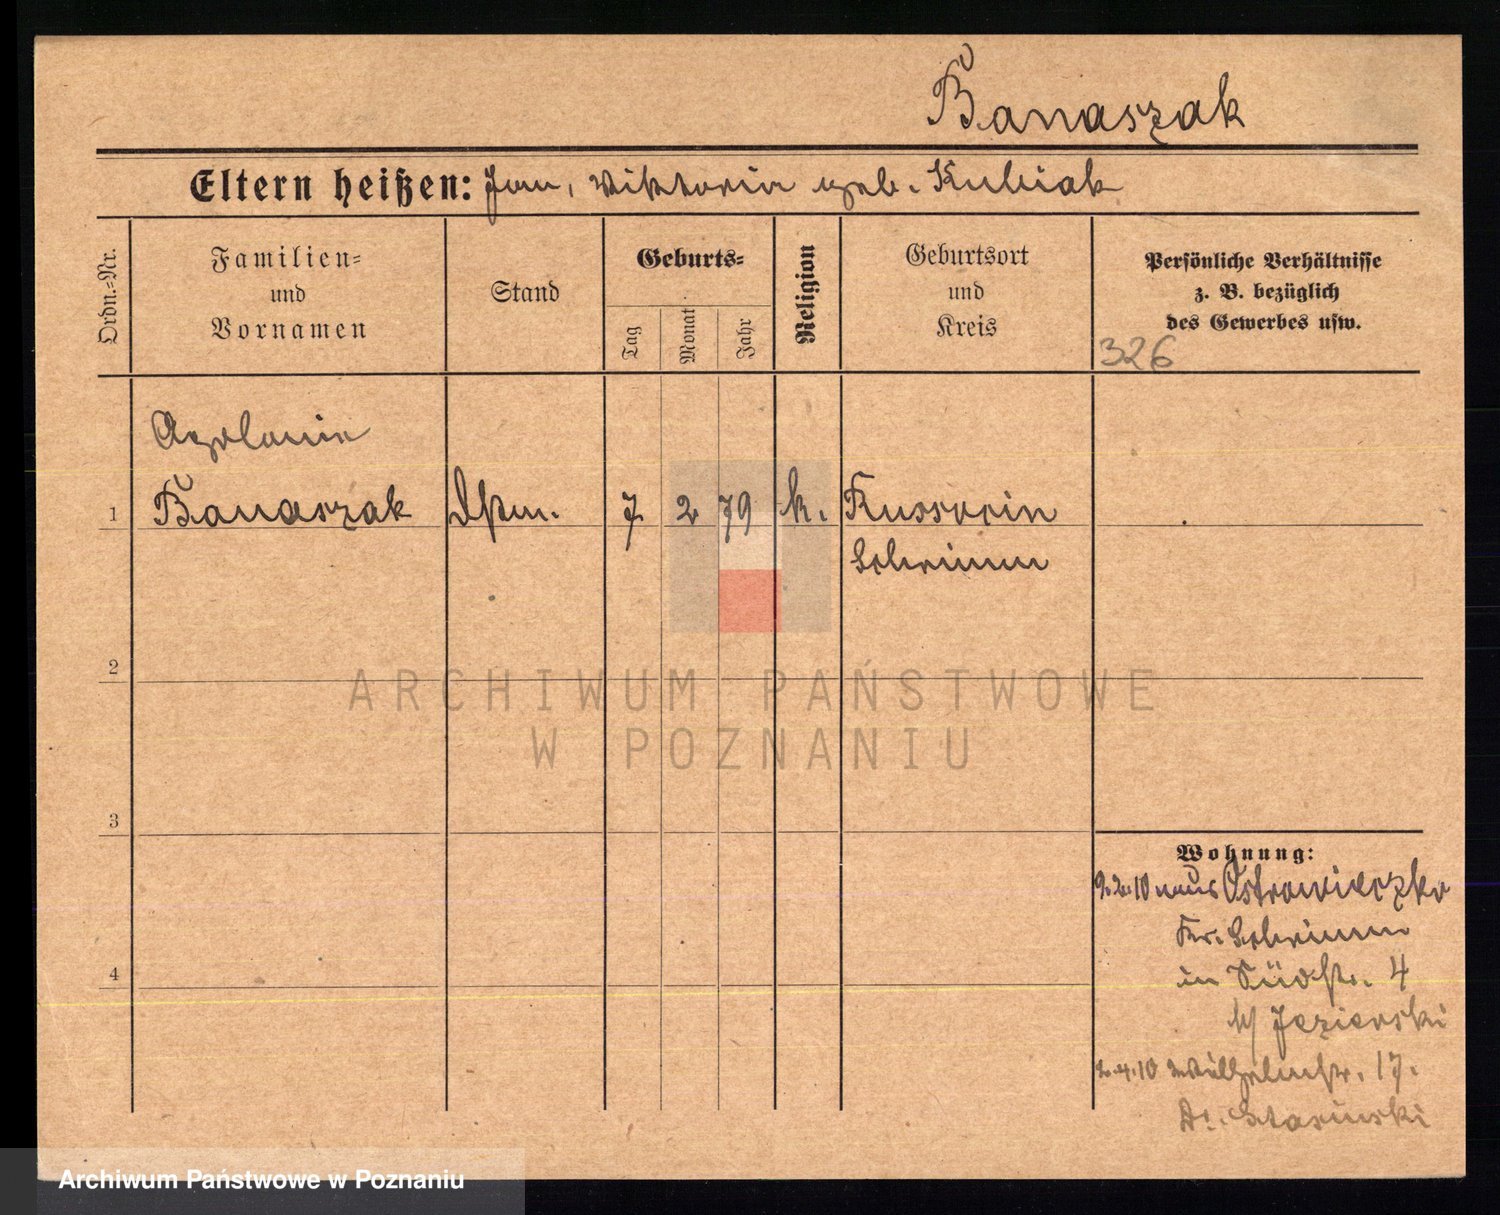 Banaszak
Eltern heißen: Jan, Viktoria geb. Kubiak
Ordn.-Nr.
Familien-
und
Vornamen
Stand
Geburts-
Tag
Monat
Jahr
Religion
Geburtsort
und
Kreis
Persönliche Verhältnisse
z. B. bezüglich
des Gewerbes usw.
326
Apolonia
1 Banaszak 7 2 79 k.
Schrimm
2
3
4
Wohnung:
2.2.10 aus Ostrowieczko
Kr. Schrimm
in Südstr. 4
b/ Jezierski
2.4.10 Wilhelmstr. 17.
Dr. Stasinski
ARCHIWUM PAŃSTWOWE
W POZNANIU
Archiwum Państwowe w Poznaniu